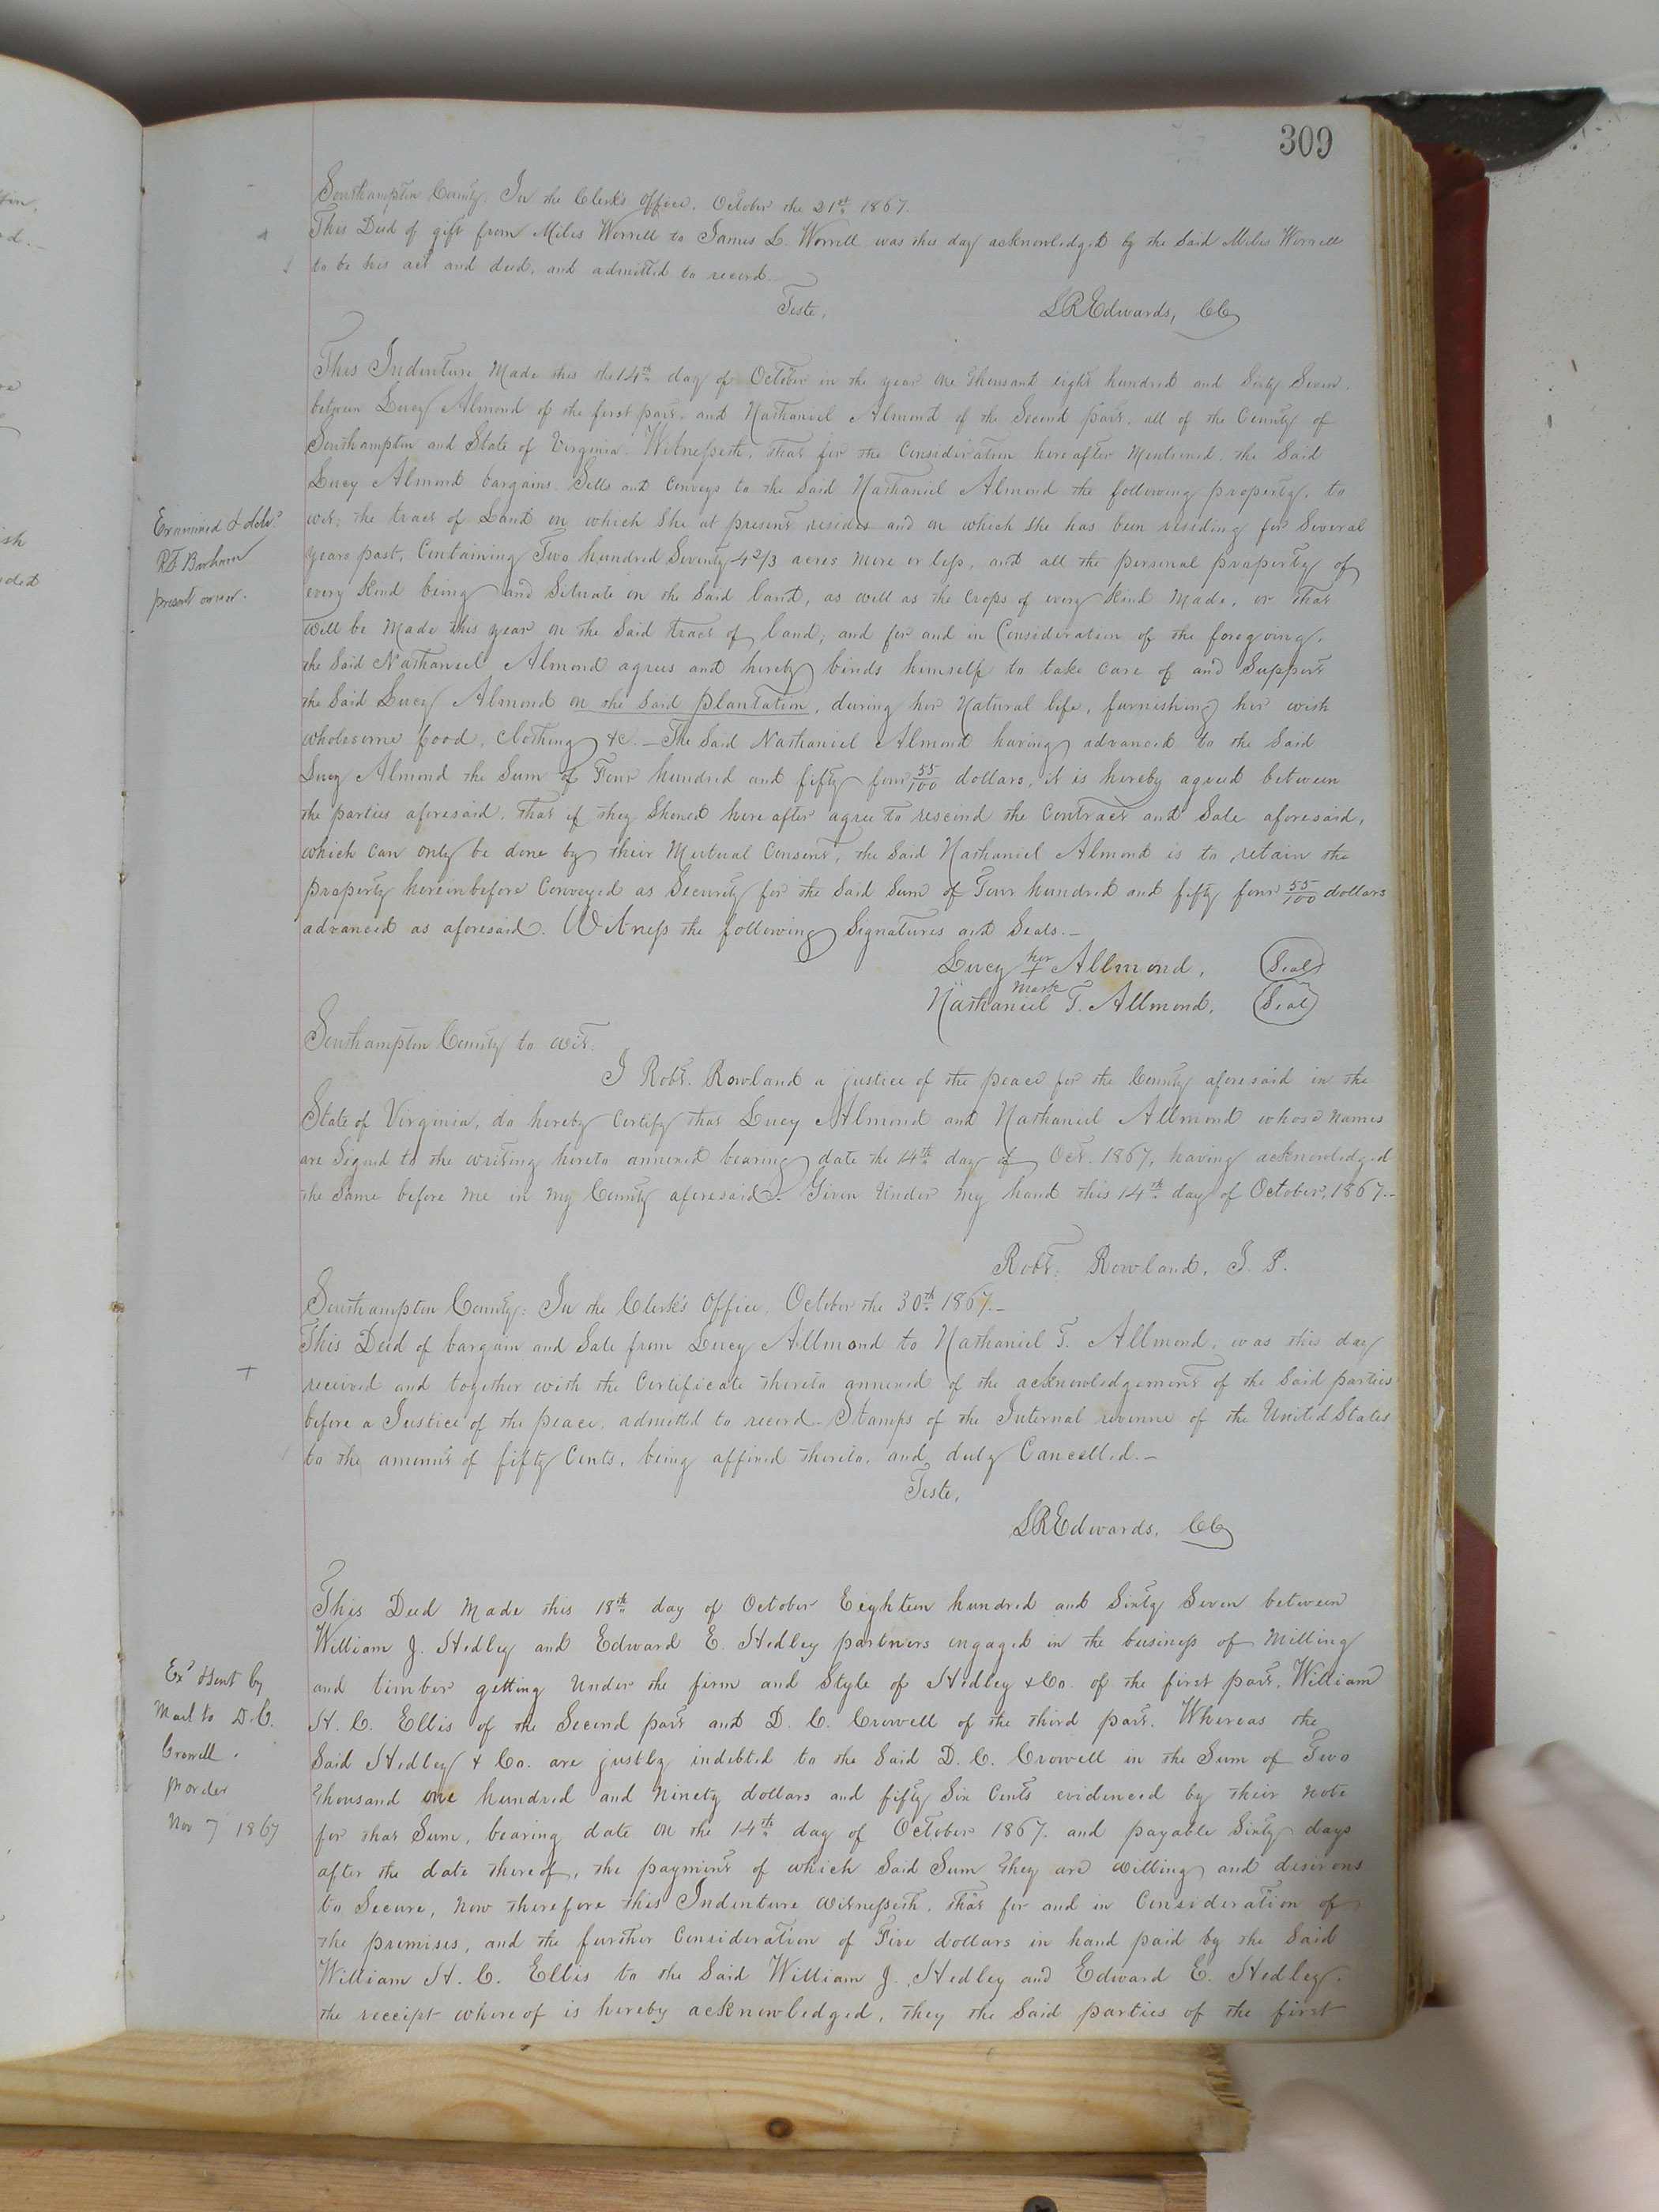 309
Southampton County: In the Clerk's Office, October the 21st 1867.
This Deed of gift from Miles Worrell to James L. Worrell was this day acknowledged by the Said Miles Worrell
to be his act and deed, and admitted to record.
Teste,
LREdwards, CC
This Indenture Made this the 14th day of October in the year One Thousand eight hundred and Sixty Seven,
between Lucy Almond of the first part, and Nathaniel Almond of the Second part, all of the County of
Southampton and State of Virginia. Witnesseth, that for the Consideration hereafter Mentioned, the Said
Lucy Almond bargains, Sells and Conveys to the Said Nathaniel Almond the following property, to
wit; the tract of Land on which She at present resides and on which she has been residing for Several
years past, Containing Two hundred Seventy 4 2/3 acres More or less, and all the personal property of
every Kind being and Situate on the Said land, as well as the Crops of every Kind Made, or that
will be Made this year on the Said tract of land; and for and in Consideration of the foregoing,
the Said Nathaniel Almond agrees and hereby binds himself to take Care of and Support
the Said Lucy Almond on the Said plantation, during her Natural life, furnishing her with
wholesome food, Clothing &c. — The Said Nathaniel Almond having advanced to the Said
Lucy Almond the Sum of Four hundred and fifty four 55/100 dollars, it is hereby agreed between
the parties aforesaid, that if they Should hereafter agree to rescind the Contract and Sale aforesaid,
which Can only be done by their Mutual Consent, the Said Nathaniel Almond is to retain the
property hereinbefore Conveyed as Security for the Said Sum of Four hundred and fifty four 55/100 dollars
advanced as aforesaid. Witness the following Signatures and Seals. —
Lucy her + mark Allmond, (Seal)
Nathaniel T. Allmond, (Seal)
Examined & delv.d
R.F. Barham
present owner.
Southampton County to wit:
I Robt. Rowland a justice of the peace for the County aforesaid in the
State of Virginia, do hereby Certify that Lucy Almond and Nathaniel Allmond whose names
are Signed to the writing hereto annexed bearing date the 14th day of Oct. 1867, having acknowledged
the Same before Me in My County aforesaid. Given Under My hand this 14th day of October, 1867. —
Robt: Rowland, J. P.
Southampton County: In the Clerk's Office, October the 30th 1867. —
This Deed of bargain and Sale from Lucy Allmond to Nathaniel T. Allmond, was this day
received and together with the Certificate thereto annexed of the acknowledgement of the Said parties
before a Justice of the peace, admitted to record. Stamps of the Internal revenue of the United States
to the amount of fifty Cents, being affixed thereto, and duly Cancelled. —
Teste,
LREdwards, CC
This Deed Made this 18th day of October Eighteen hundred and Sixty Seven between
William J. Hedley and Edward E. Hedley partners engaged in the business of Milling
and timber getting Under the firm and Style of Hedley & Co. of the first part, William
H. C. Ellis of the Second part and D. C. Crowell of the third part. Whereas the
Said Hedley & Co. are justly indebted to the Said D. C. Crowell in the Sum of Two
Thousand one hundred and Ninety dollars and fifty Six Cents evidenced by their Note
for that Sum, bearing date on the 14th day of October 1867. and payable Sixty days
after the date thereof, the payment of which Said Sum they are willing and desirous
to Secure, Now therefore this Indenture witnesseth, that for and in Consideration of
the premises, and the further Consideration of Five dollars in hand paid by the Said
William H. C. Ellis to the Said William J. Hedley and Edward E. Hedley,
the receipt whereof is hereby acknowledged, they the Said parties of the first
Exd & sent by
Mail to D.C.
Crowell.
pr order
Nov 7 1867